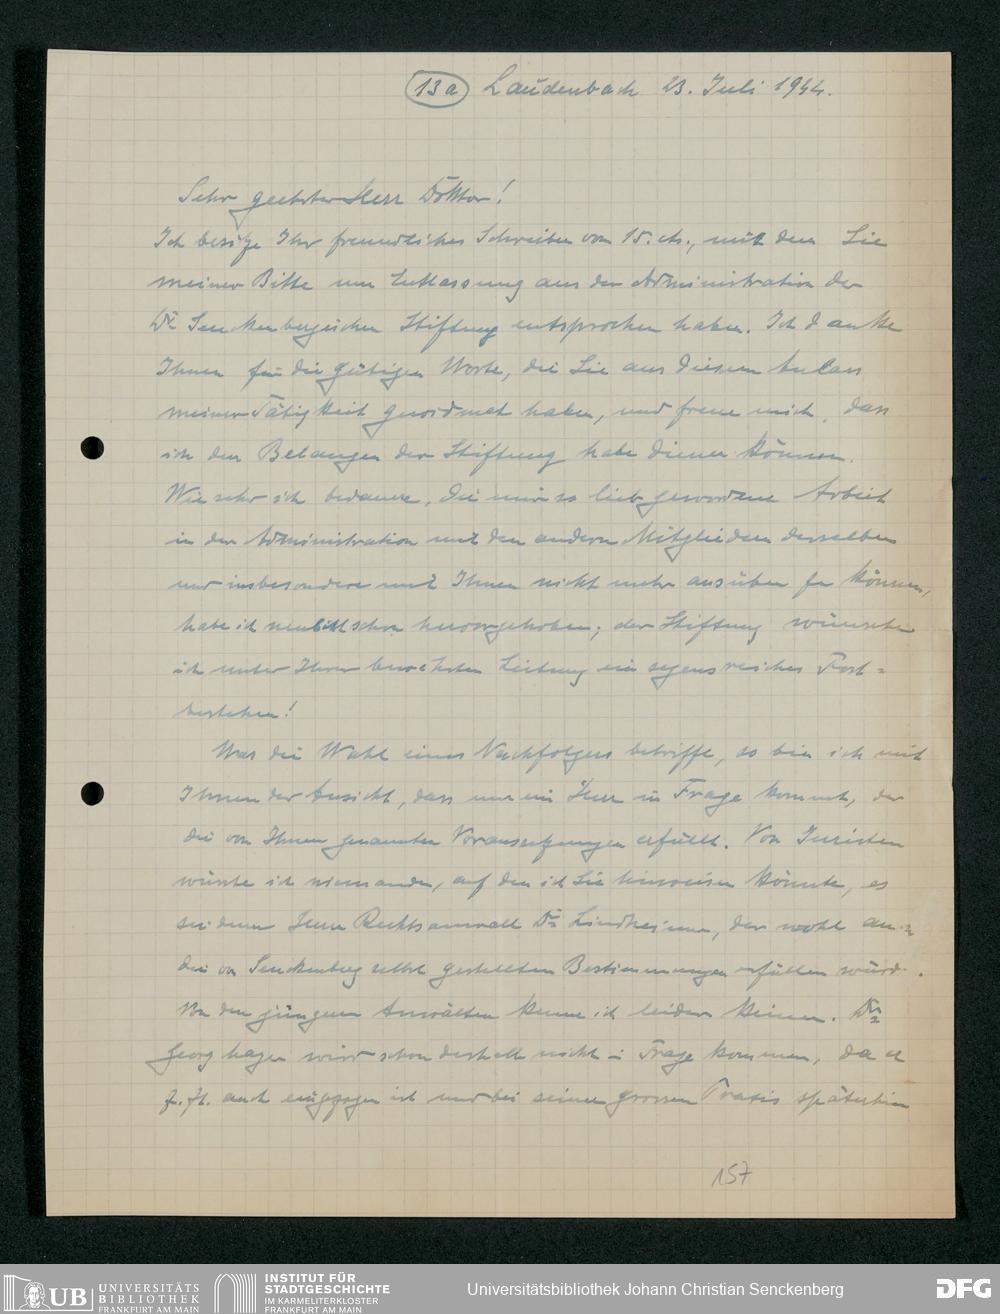 (13a) Laudenbach 23. Juli 1944.
Sehr geehrter Herr Doktor!
Ich besitze Ihr freundliches Schreiben vom 15. cts., mit dem Sie
meiner Bitte um Entlassung aus der Administration der
Dr. Senckenbergischen Stiftung entsprochen haben. Ich danke
Ihnen für die gütigen Worte, die Sie aus diesem Anlass
meiner Tätigkeit gewidmet haben, und freue mich, dass
ich den Belangen der Stiftung habe dienen können.
Wie sehr ich bedauere, die mir so lieb gewordene Arbeit
in der Administration mit den andern Mitgliedern derselben
und insbesondere mit Ihnen nicht mehr ausüben zu können,
habe ich neulich schon hervorgehoben; der Stiftung wünsche
ich unter Ihrer bewährten Leitung ein segensreiches Fort=
bestehen!
Was die Wahl eines Nachfolgers betrifft, so bin ich mit
Ihnen der Ansicht, dass nur ein Herr in Frage kommt, der
die von Ihnen genannten Voraussetzungen erfüllt. Von Juristen
wüsste ich niemanden, auf den ich Sie hinweisen könnte, es
sei denn Herr Rechtsanwalt Dr. Lindheimer, der wohl auch
die von Senckenberg selbst gestellten Bestimmungen erfüllen würde.
Von den jüngeren Anwälten kenne ich leider keinen. Dr.
Georg Hagen wird schon deshalb nicht in Frage kommen, da er
z. Zt. auch eingezogen ist und bei seiner grossen Praxis späterhin
157
UB UNIVERSITÄTS
BIBLIOTHEK
FRANKFURT AM MAIN
INSTITUT FÜR
STADTGESCHICHTE
IM KARMELITERKLOSTER
FRANKFURT AM MAIN
Universitätsbibliothek Johann Christian Senckenberg
DFG